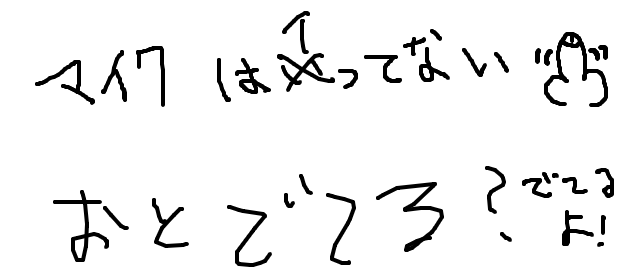 マイクは入ってない
おとでてる?でてるよ!